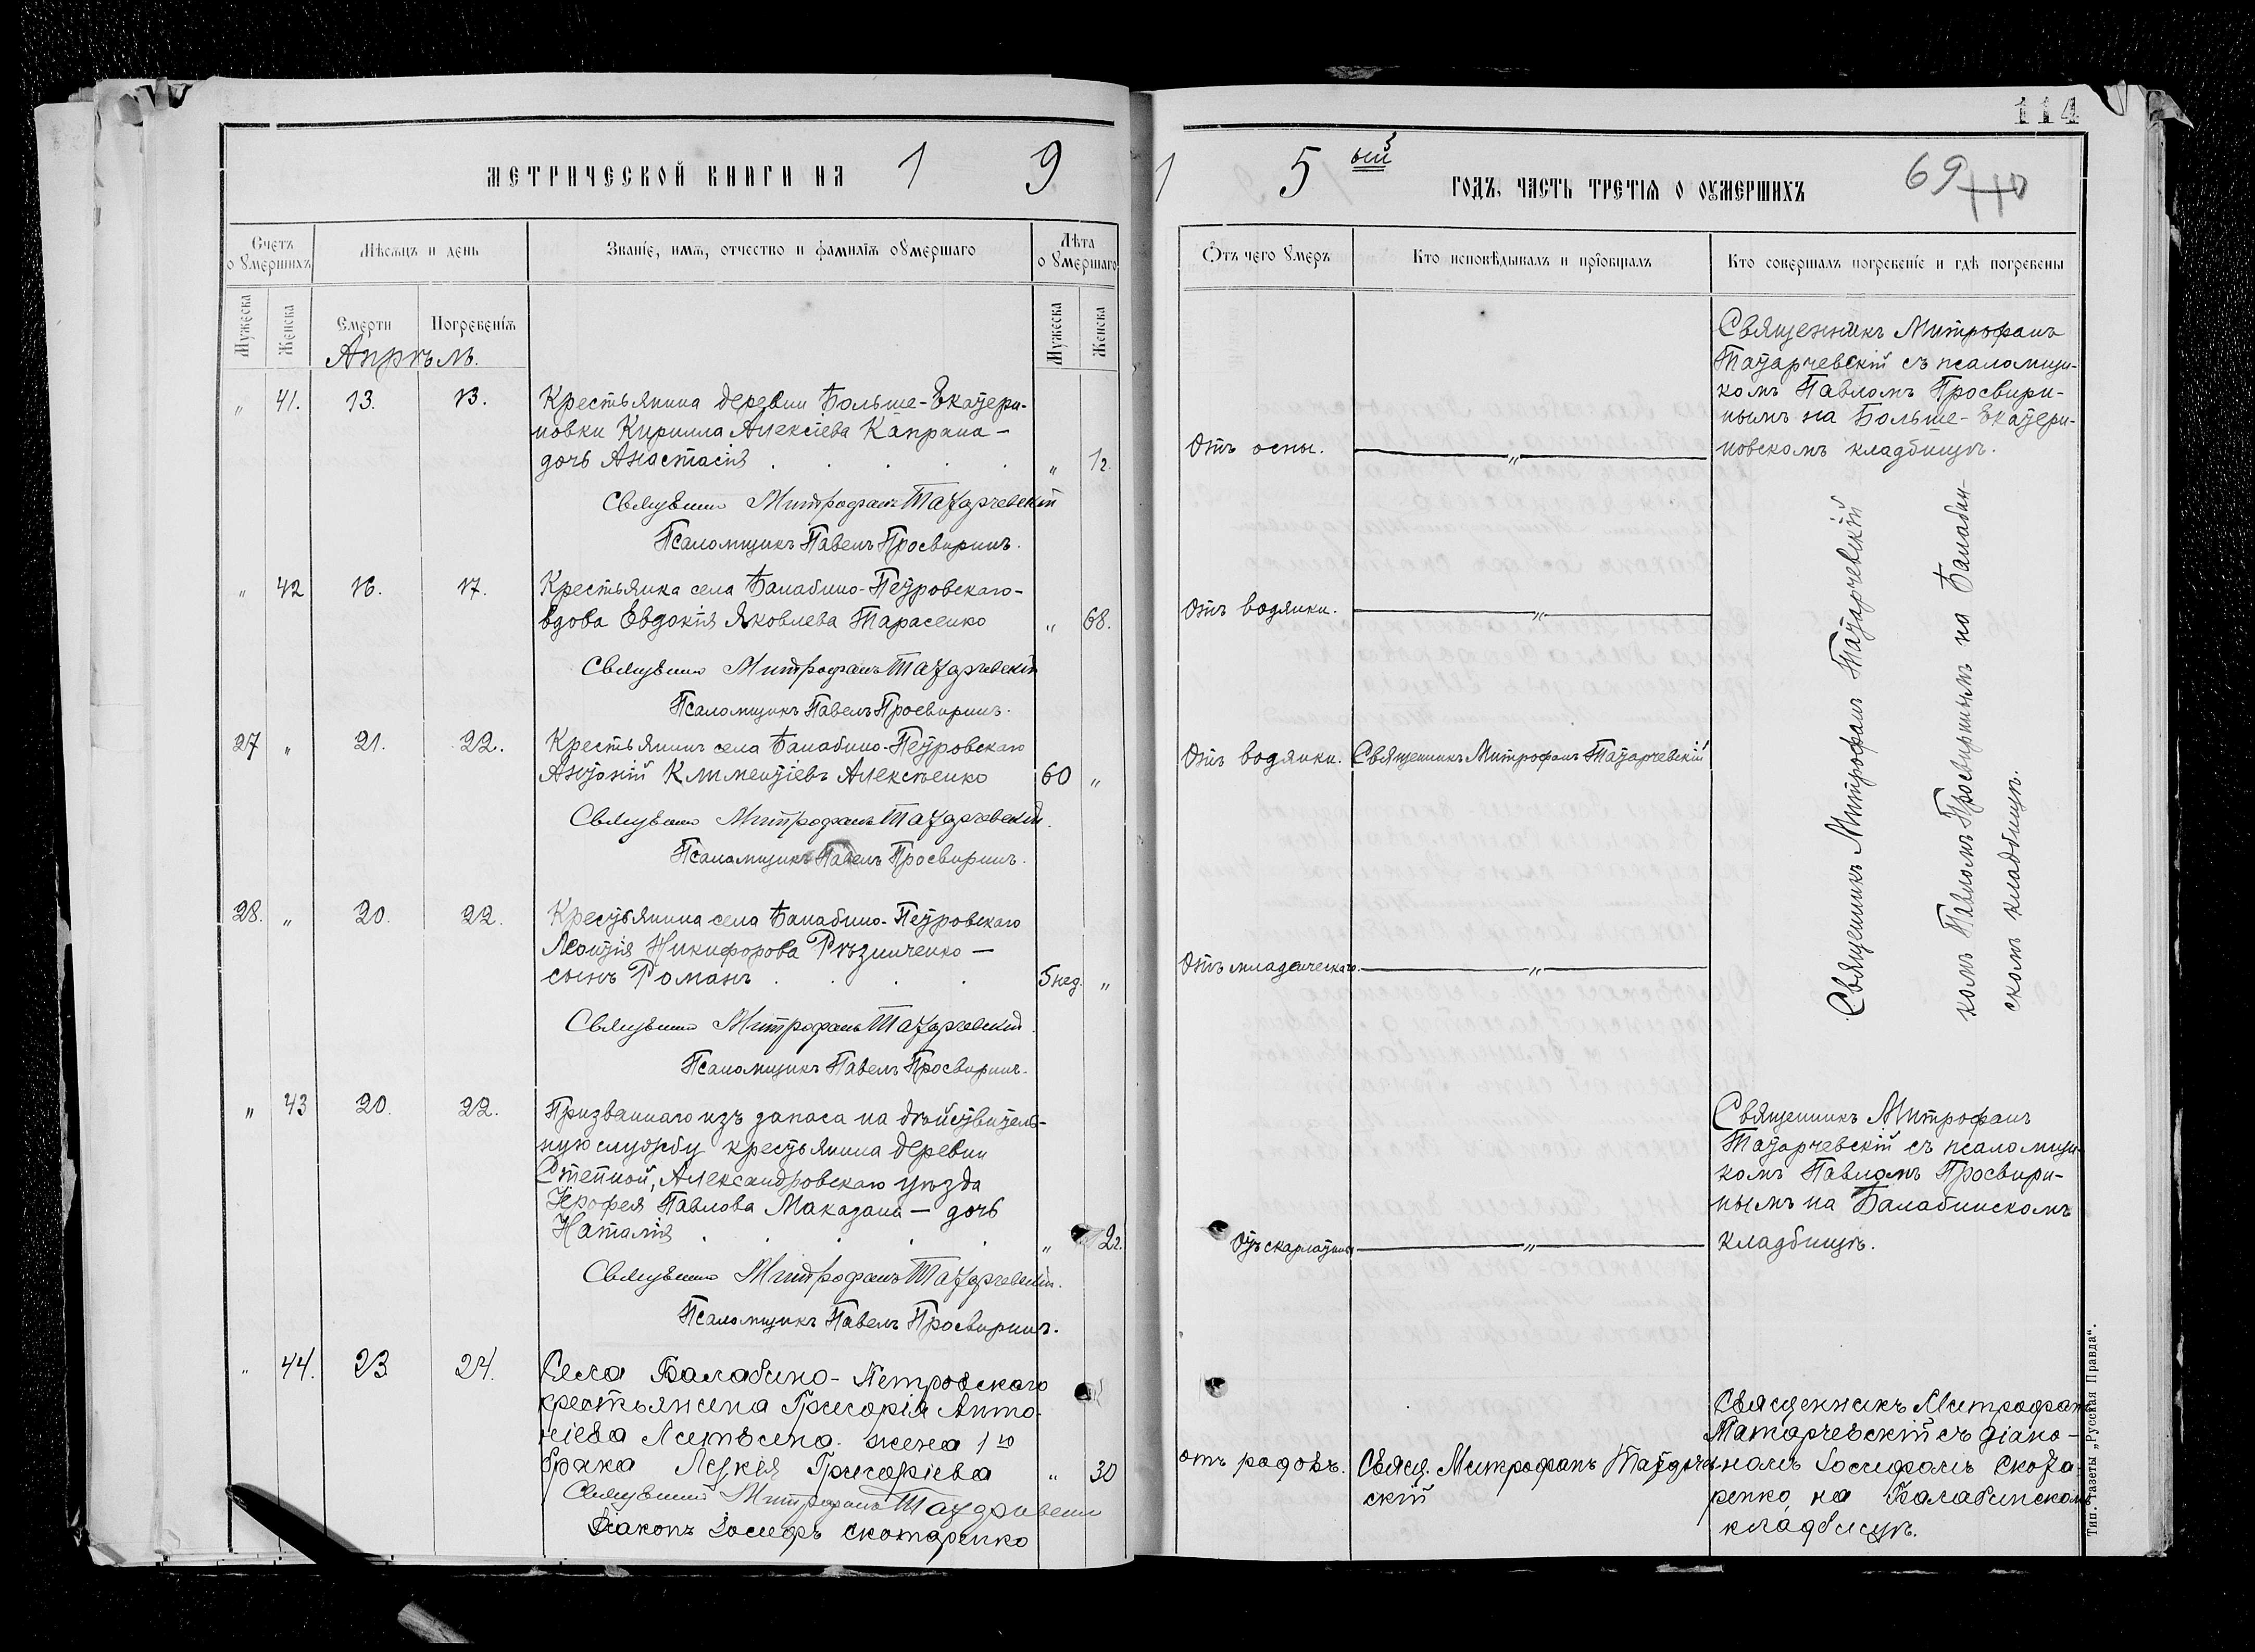 114
МЕТРИЧЕСКОЙ КНИГИ НА 1 9
1 5 ый ГОДЪ, ЧАСТЬ ТРЕТІЯ О ОУМЕРШИХЪ
69 110
Счетъ оумершихъ
Мѣсяцъ и день
Званіе, имя, отчество и фамилія оумершаго
Лѣта оумершаго
Мужеска
Женска
Смерти
Погребенія
Мужеска
Женска
Отъ чего умеръ
Кто исповѣдывалъ и пріобщалъ
Кто совершалъ погребеніе и гдѣ погребены
Апрѣль.
„ 41. 13. 13. Крестьянина деревни Больше-Екатери-
новки Кирилла Алексіева Капрана —
дочь Анастасія . . . . . „ 1г.
Священникъ Митрофанъ Татарчевскій
Псаломщикъ Павелъ Просвиринъ.
Отъ оспы. „
Священникъ Митрофанъ
Татарчевскій съ псаломщи-
комъ Павломъ Просвири-
нымъ на Больше-Екатери-
новскомъ кладбищѣ.
„ 42 16. 17. Крестьянка села Балабино-Петровскаго-
вдова Евдокія Яковлева Тарасенко „ 68.
Священникъ Митрофанъ Татарчевскій
Псаломщикъ Павелъ Просвиринъ.
Отъ водянки. „
27 „ 21. 22. Крестьянинъ села Балабино-Петровскаго
Антоній Климентіевъ Алексѣенко 60 „
Священникъ Митрофанъ Татарчевскій.
Псаломщикъ Павелъ Просвиринъ.
Отъ водянки. Священникъ Митрофанъ Татарчевскій
28. „ 20. 22. Крестьянина села Балабино-Петровскаго
Леонтія Никифорова Рѣзниченко —
сынъ Романъ . . . . 5 нед. „
Священникъ Митрофанъ Татарчевскій.
Псаломщикъ Павелъ Просвиринъ.
Отъ младенческаго. „
Священникъ Митрофанъ Татарчевскій
комъ Павломъ Просвиринымъ на Балабин-
скомъ кладбищѣ.
„ 43 20. 22. Призваннаго изъ запаса на дѣйствитель-
ную службу крестьянина деревни
Степной, Александровскаго уѣзда
Ерофея Павлова Маказана — дочь
Наталія . . . . . „ 2г.
Священникъ Митрофанъ Татарчевскій.
Псаломщикъ Павелъ Просвиринъ.
Отъ скарлатины „
Священникъ Митрофанъ
Татарчевскій съ псаломщи-
комъ Павломъ Просвири-
нымъ на Балабинскомъ
кладбищѣ.
„ 44. 23 24. Села Балабино-Петровскаго
крестьянина Григорія Анто-
ніева Литвина. жена 1го
брака Лукія Григоріева „ 30
Священникъ Митрофанъ Татарчевскій
Діаконъ Іосифъ Скотаренко
отъ родовъ. Свящ. Митрофанъ Татарчев-
скій
Священникъ Митрофанъ
Татарчевскій съ діако-
номъ Іосифомъ Скота-
ренко, на Балабинскомъ
кладбищѣ.
Тип. газеты „Русская Правда“.